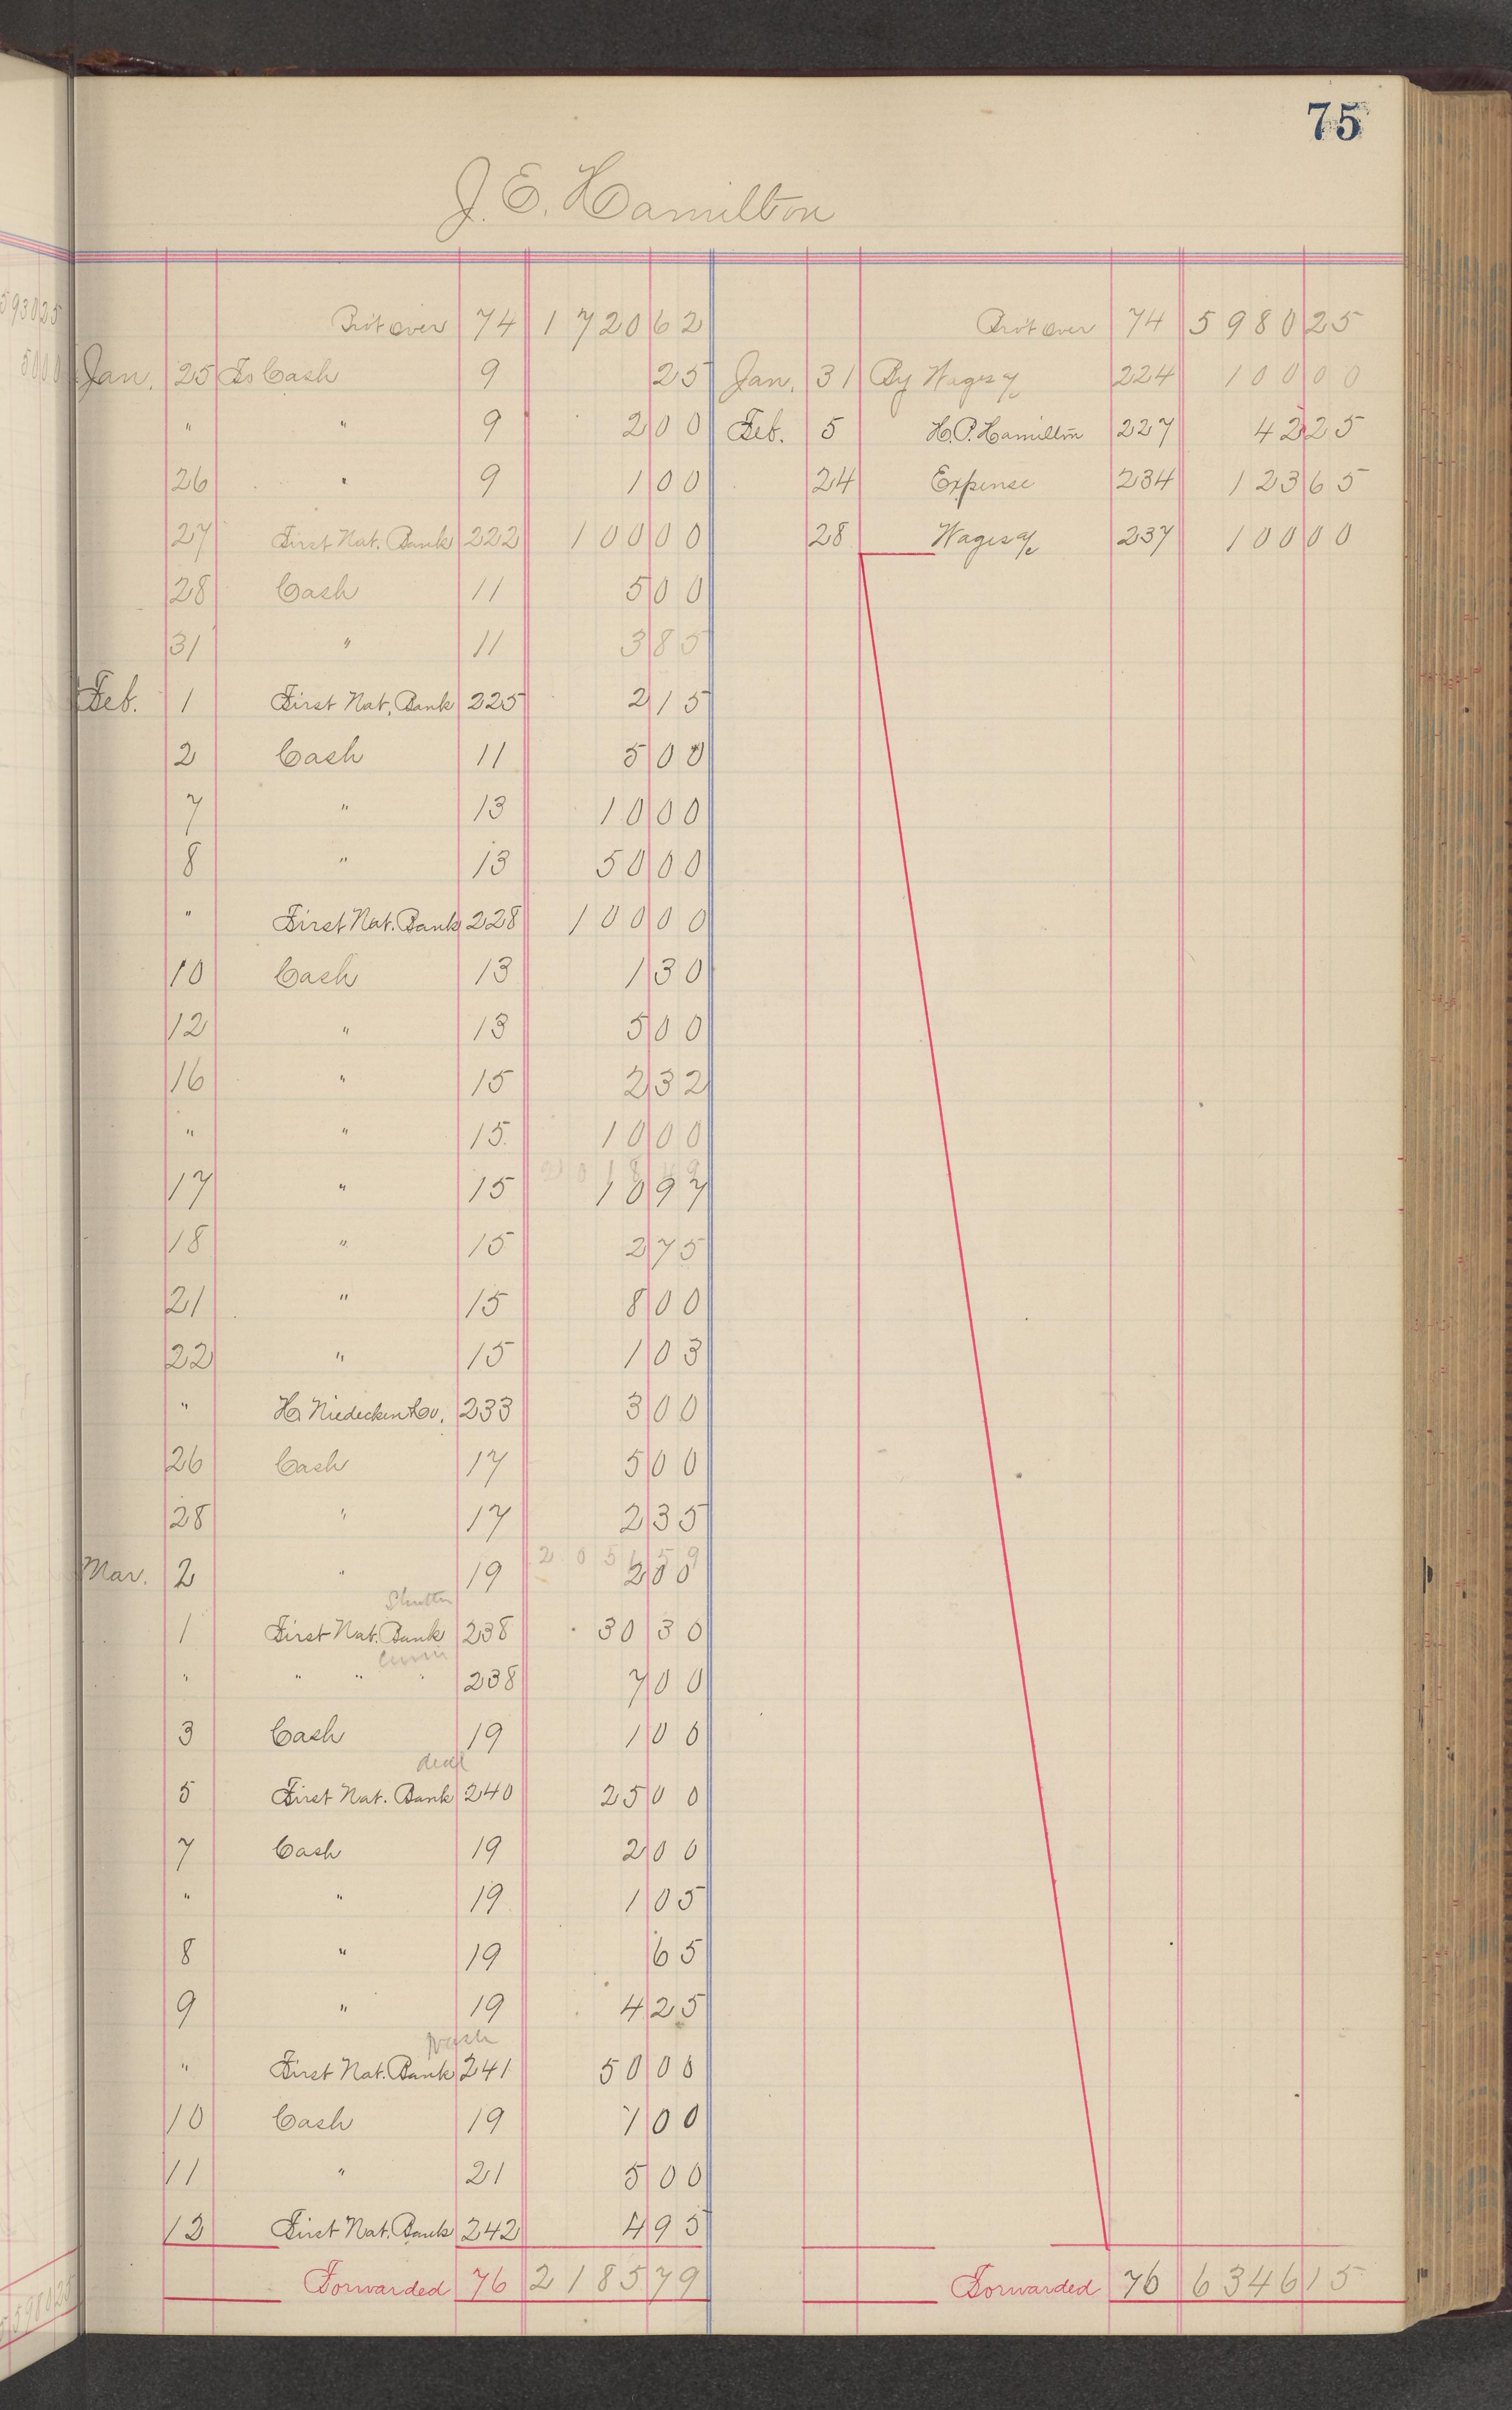 75
J. E. Hamilton
Bro't over 74 1720 62 Bro't over 74 5980 25
Jan. 25 To Cash 9 25 Jan. 31 By Wages a/c 224 100 00
" " 9 2 00 Feb. 5 H. P. Hamilton 227 42 25
26 " 9 1 00 24 Expense 234 123 65
27 First Nat. Bank 222 100 00 28 Wages a/c 237 100 00
28 Cash 11 5 00
31 " 11 3 85
Feb. 1 First Nat. Bank 225 2 15
2 Cash 11 5 00
7 " 13 10 00
8 " 13 50 00
" First Nat. Bank 228 100 00
10 Cash 13 1 30
12 " 13 5 00
16 " 15 2 32
" " 15 10 00
2018 49
17 " 15 10 97
18 " 15 2 75
21 " 15 8 00
22 " 15 1 03
" H. Niedecken Co. 233 3 00
26 Cash 17 5 00
28 " 17 2 35
2051 59
Mar. 2 " 19 2 00
1 First Nat. Bank 238 30 30
" " " " 238 7 00
3 Cash 19 1 00
5 First Nat. Bank 240 25 00
7 Cash 19 2 00
" " 19 1 05
8 " 19 65
9 " 19 4 25
" First Nat. Bank 241 50 00
10 Cash 19 1 00
11 " 21 5 00
12 First Nat. Bank 242 4 95
Forwarded 76 2185 79 Forwarded 76 6346 15